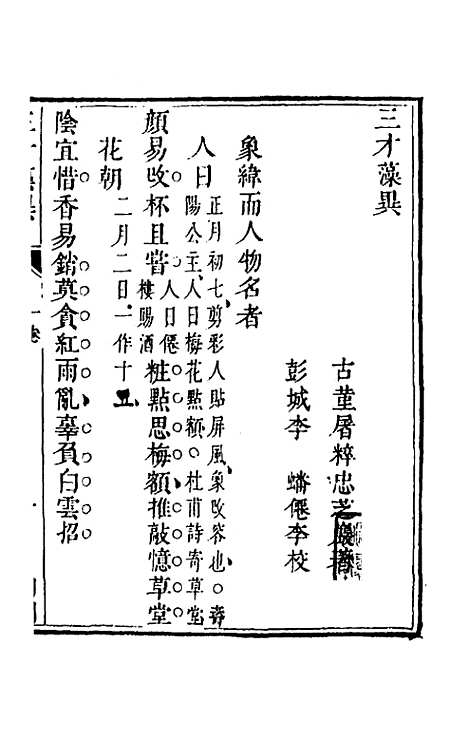 三才藻異
古董屠粹忠芝巖著
彭城李　蟠僊李校
象緯而人物名者
人日　正月初七剪彩人貼屏風象改容也○壽
陽公主人日梅花點額○杜甫詩寄草堂
顏易改杯且嘗　人日僊
樓賜酒　粧點思梅額推敲憶草堂
花朝　二月二日一作十五
陰宜惜香易銷莫貪紅雨亂辜負白雲招
三才藻異　一卷